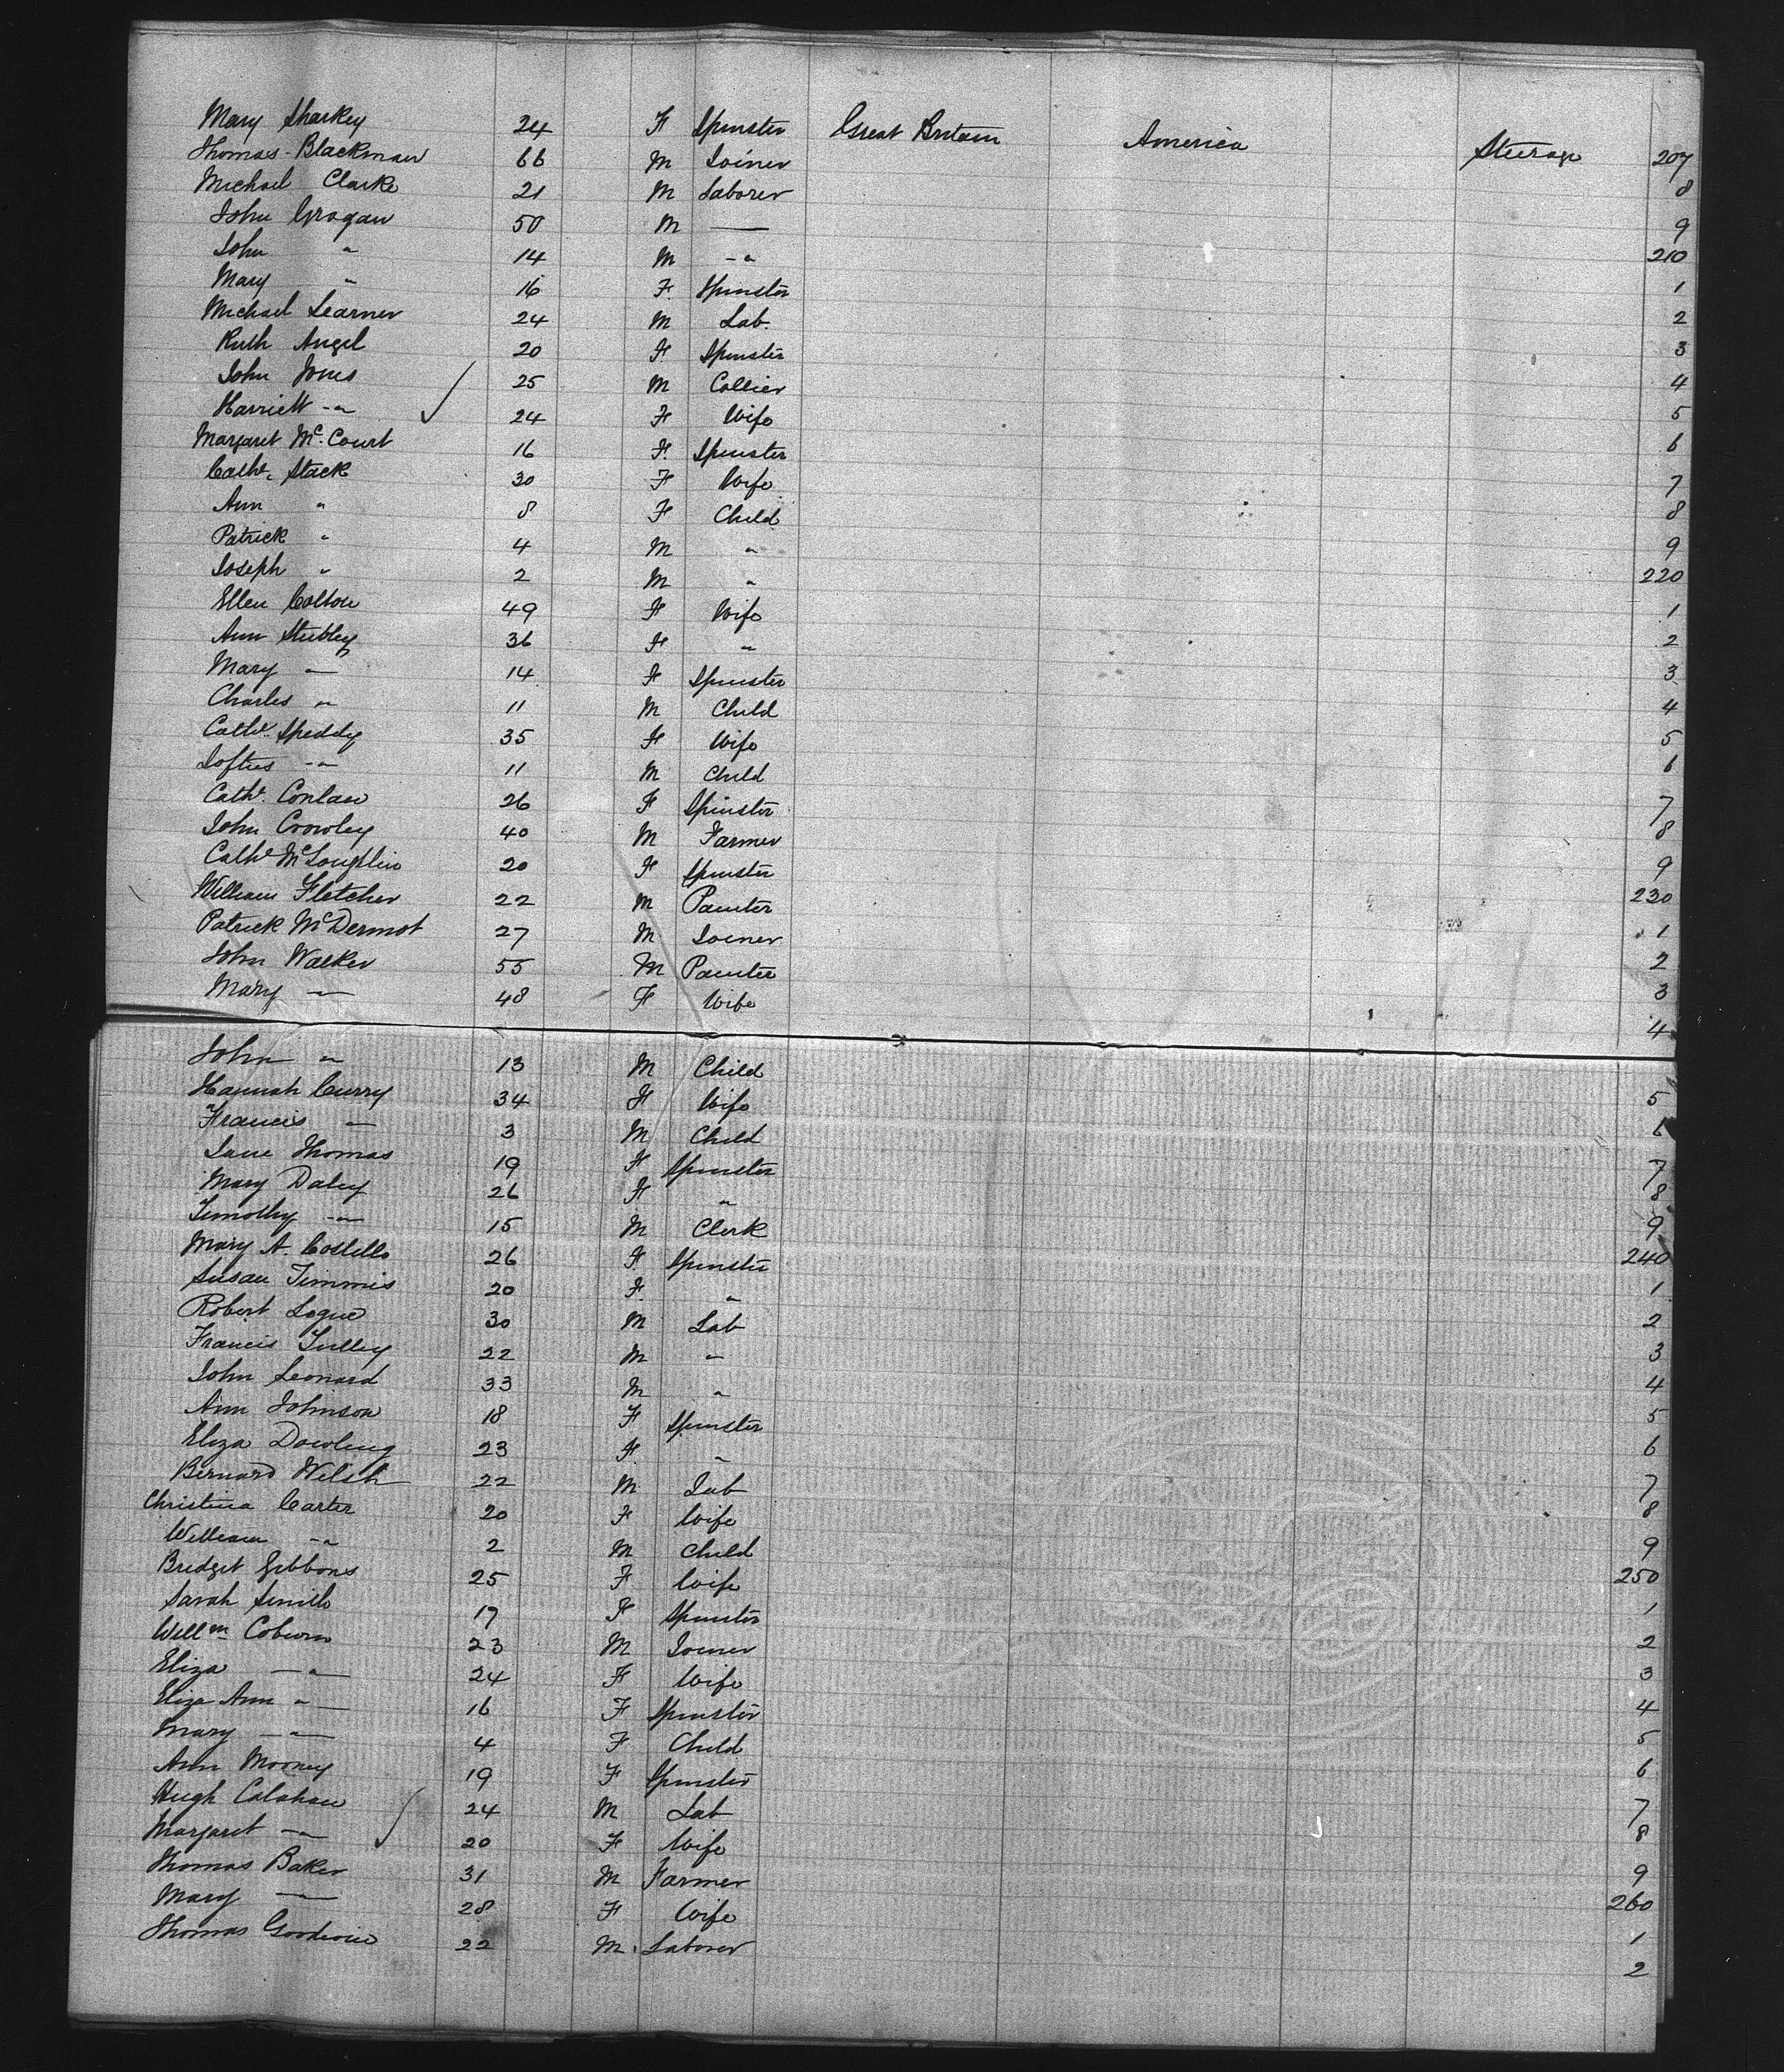 Mary Sharkey 24 F Spinster Great Britain America Steerage 207
Thomas Blackman 66 M Joiner 8
Michael Clarke 21 M Laborer 9
John Grogan 50 M — 210
John " 14 M - " 1
Mary " 16 F. Spinster 2
Michael Learner 24 M Lab. 3
Ruth Angel 20 F. Spinster 4
John Jones 25 M Collier 5
Harriett - " 24 F Wife 6
Margaret McCourt 16 F. Spinster 7
Cathe. Stack 30 F Wife 8
Ann " 8 F Child 9
Patrick " 4 M " 220
Joseph " 2 M " 1
Ellen Colton 49 F Wife 2
Ann Stubley 36 F " 3
Mary " 14 F Spinster 4
Charles " 11 M Child 5
Cathe. Speddy 35 F Wife 6
Loftus - " 11 M Child 7
Cathe. Conlan 26 F Spinster 8
John Crowley 40 M Farmer 9
Cathe McLoughlin 20 F Spinster 230
William Fletcher 22 M Painter 1
Patrick McDermot 27 M Joiner 2
John Walker 55 M Painter 3
Mary " 48 F Wife 4
John " 13 M Child 5
Hannah Curry 34 F Wife 6
Francis " 3 M Child 7
Jane Thomas 19 F Spinster 8
Mary Daley 26 F " 9
Timothy - " 15 M Clerk 240
Mary A. Costello 26 F. Spinster 1
Susan Timmis 20 F. " 2
Robert Logue 30 M Lab 3
Francis Tulley 22 M " 4
John Leonard 33 M " 5
Ann Johnson 18 F Spinster 6
Eliza Dowling 23 F. " 7
Bernard Welsh 22 M Lab 8
Christina Carter 20 F Wife 9
William - " 2 M Child 250
Bridget Gibbons 25 F Wife 1
Sarah Smith 17 F Spinster 2
Willm Coburn 23 M Joiner 3
Eliza - " 24 F Wife 4
Eliza Ann " 16 F Spinster 5
Mary - " 4 F Child 6
Ann Mooney 19 F Spinster 7
Hugh Calahan 24 M Lab 8
Margaret - " 20 F Wife 9
Thomas Baker 31 M Farmer 260
Mary " 28 F Wife 1
Thomas Goodwin 22 M. Laborer 2